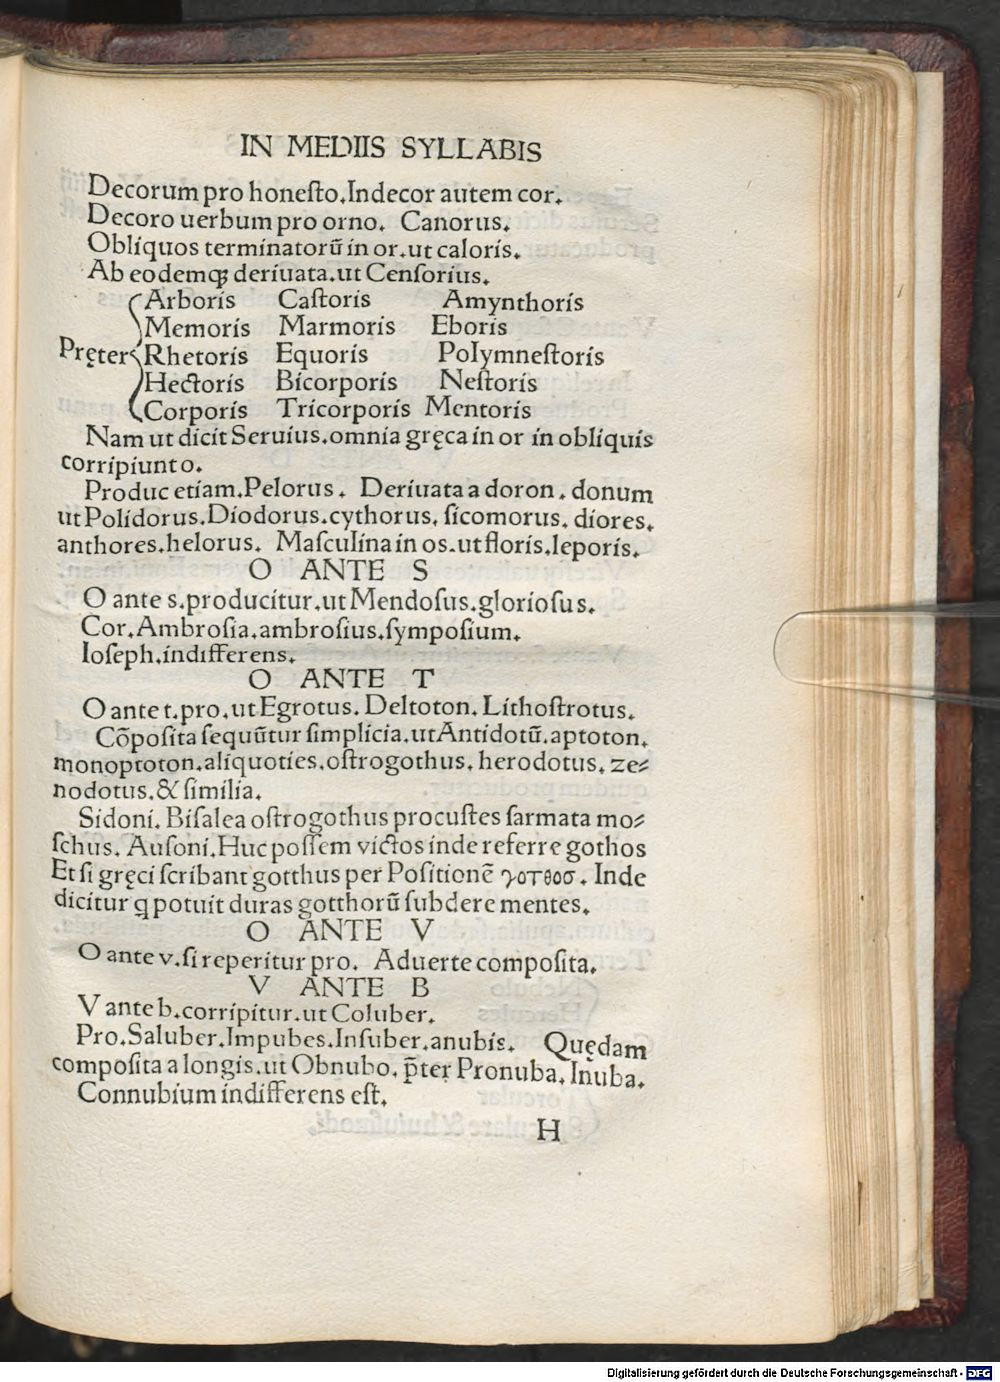 IN MEDIIS SYLLABIS
Decorum pro honeſto.Indecor autem cor.
Decoro uerbum pro orno. Canorus.
Obliquos terminatorū in or.ut caloris.
Ab eodemqꝫ deriuata.ut Cenſorius.
Arboris Caſtoris Amynthoris
Memoris Marmoris Eboris
Pręter Rhetoris Equoris Polymneſtoris
Hectoris Bicorporis Neſtoris
Corporis Tricorporis Mentoris
Nam ut dicit Seruius.omnia gręca in or in obliquis
corripiunt o.
Produc etiam.Pelorus. Deriuata a doron. donum
ut Polidorus.Diodorus.cythorus. ſicomorus. diores.
anthores.helorus. Maſculina in os.ut floris.leporis.
O ANTE S
O ante s.producitur.ut Mendoſus.glorioſus.
Cor.Ambroſia.ambroſius.ſympoſium.
Ioſeph.indifferens.
O ANTE T
O ante t.pro.ut Egrotus. Deltoton. Lithoſtrotus.
Cōpoſita ſequūtur ſimplicia.ut Antidotū.aptoton.
monoptoton.aliquoties.oſtrogothus. herodotus. ze⸗
nodotus.& ſimilia.
Sidoni. Biſalea oſtrogothus procuſtes ſarmata mo⸗
ſchus. Auſoni.Huc poſſem victos inde referre gothos
Et ſi gręci ſcribant gotthus per Poſitionē γοτθοσ. Inde
dicitur q potuit duras gotthorū ſubdere mentes.
O ANTE V
O ante v.ſi reperitur pro. Aduerte compoſita.
V ANTE B
V ante b.corripitur.ut Coluber.
Pro.Saluber.Impubes.Inſuber.anubis. Quędam
compoſita a longis.ut Obnubo. p̄ter Pronuba. Inuba.
Connubium indifferens eſt.
H
Digitalisierung gefördert durch die Deutsche Forschungsgemeinschaft - DFG